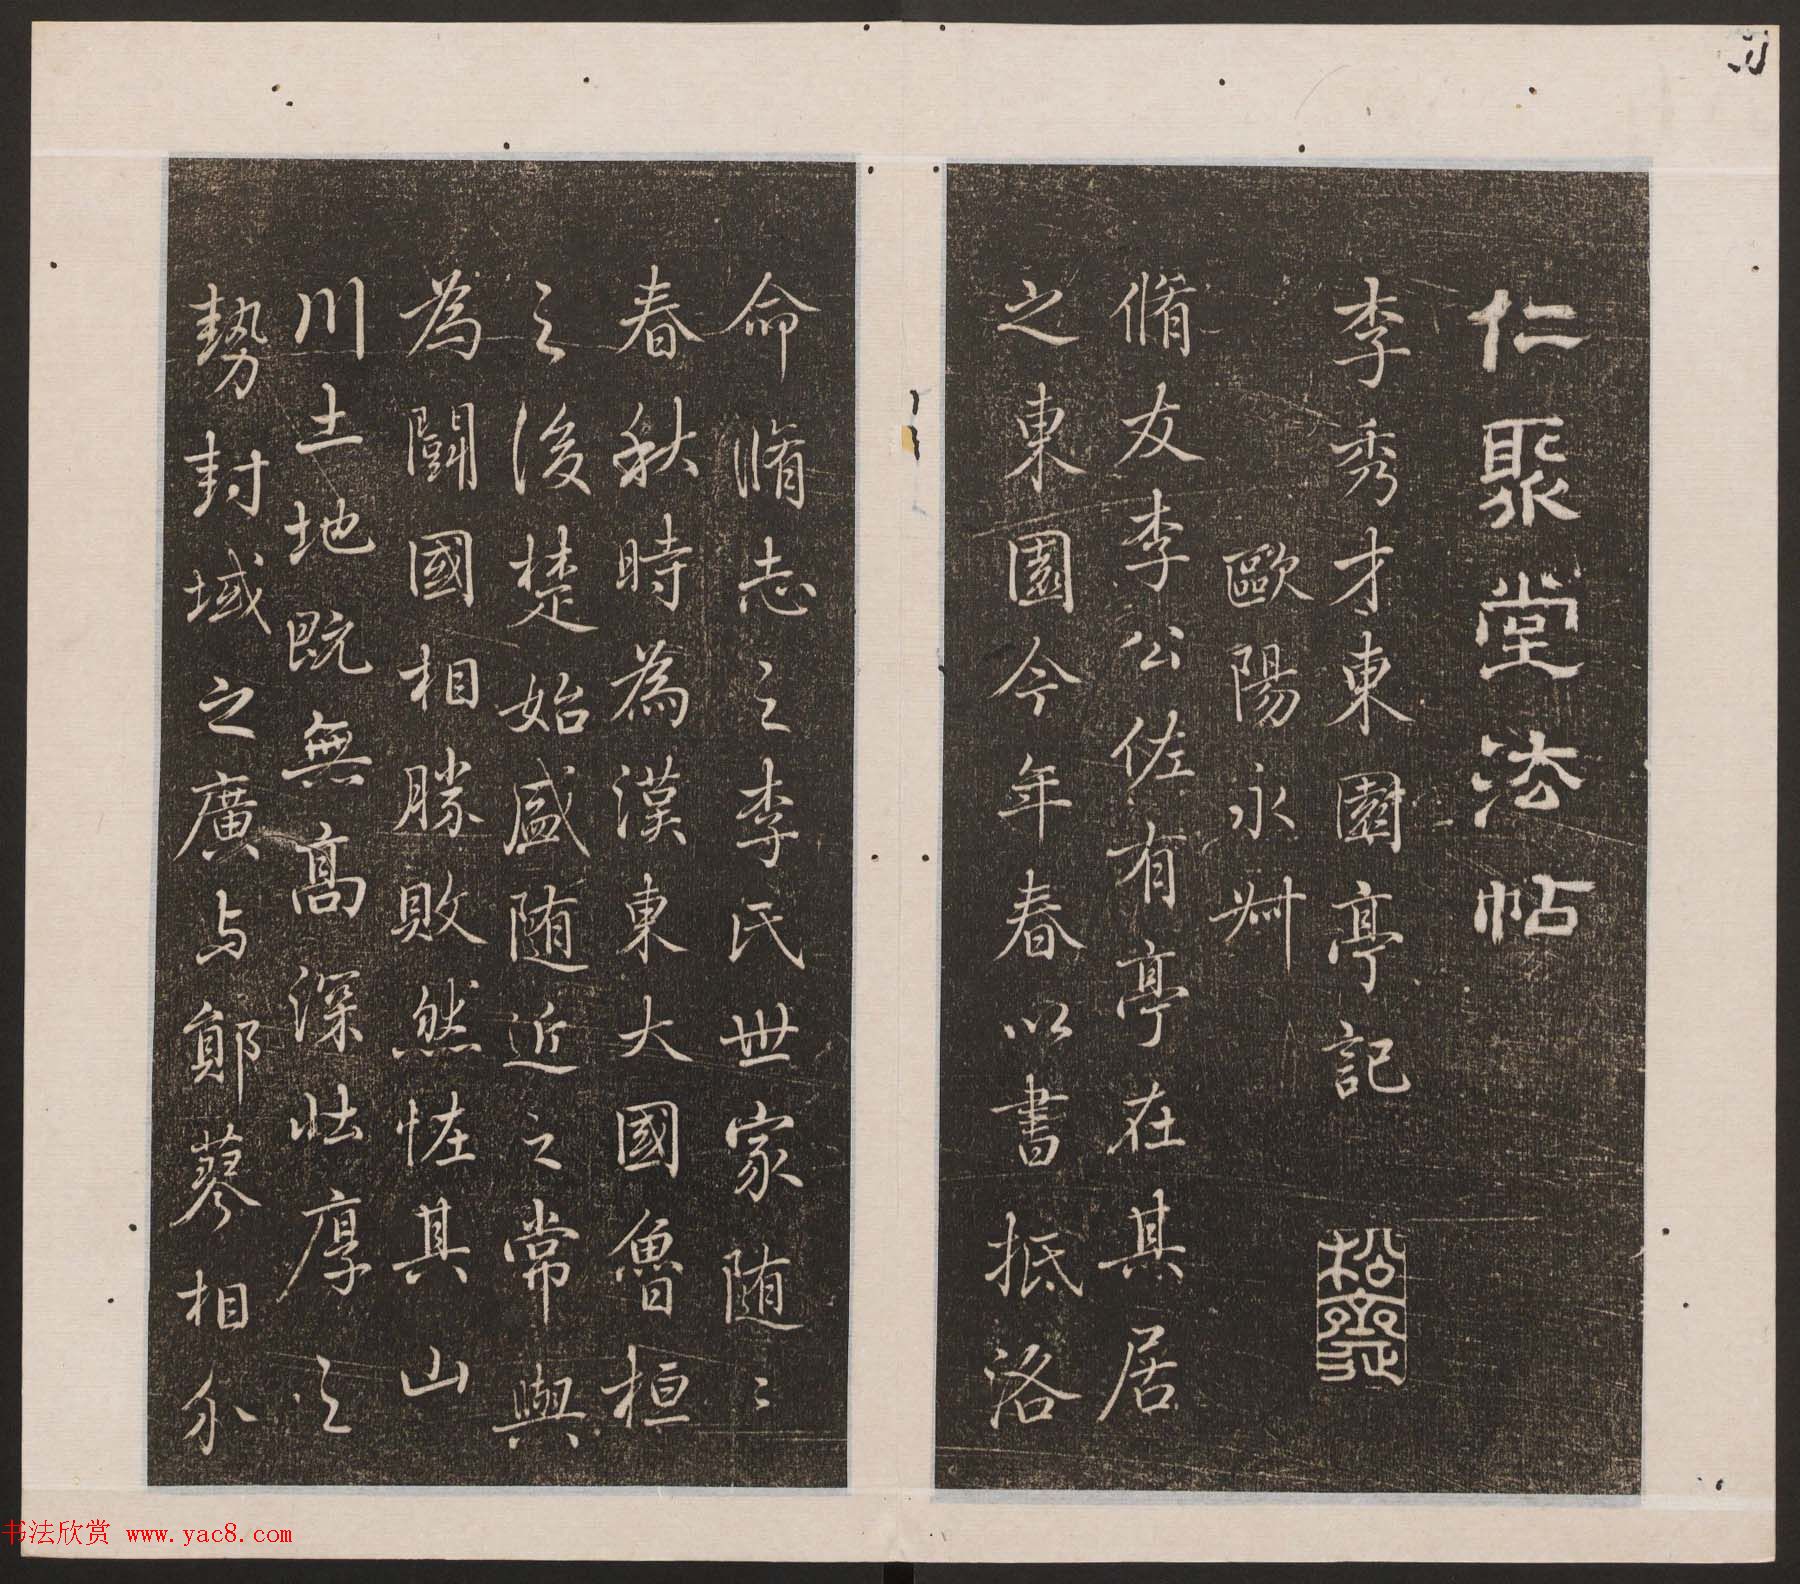 仁聚堂法帖
李秀才東園亭記
松齋
歐陽永州
脩友李公佐有亭在其居
之東園今年春以書抵洛
命脩志之李氏世家隨〻
春秋時為漢東大國魯桓
之後楚始盛隨近之常與
為鬭國相勝敗然恠其山
川土地既無高深壯厚之
勢封域之廣与鄖蓼相介
书法欣赏 www.yac8.com